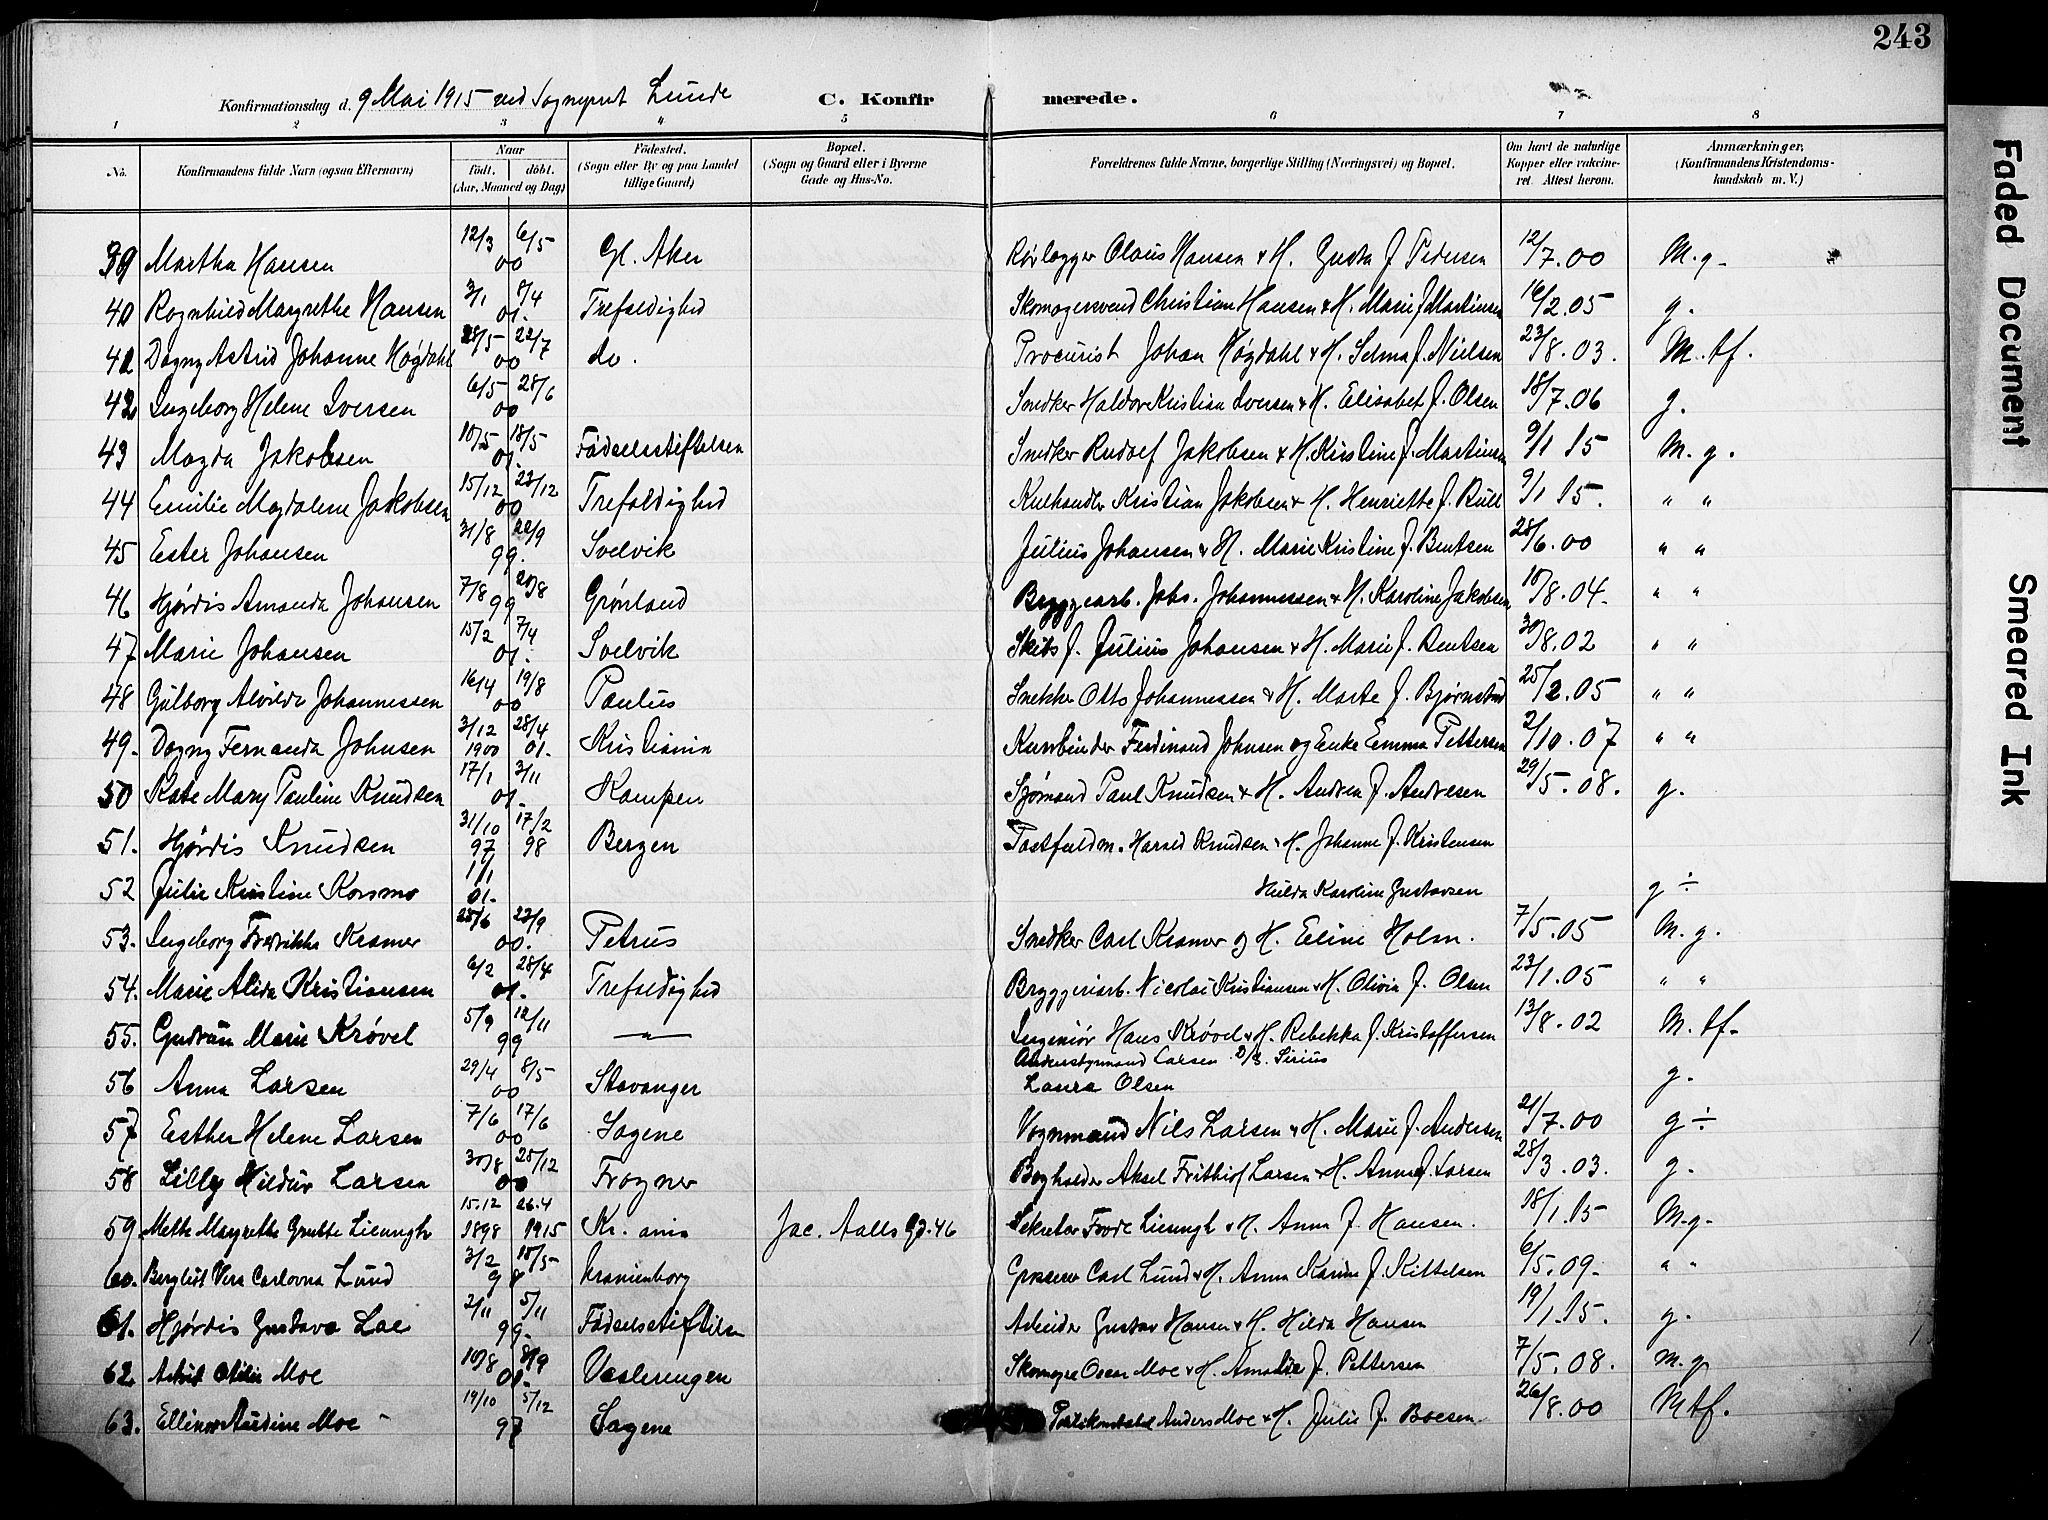 243
Konfirmationsdag d. 9 Mai 1915 ved Sogneprest Lunde C. Konfirmerede.
1 2 3 4 5 6 7 8
No. Konfirmandens fulde Navn (ogsaa Efternavn) Naar født. døbt. (Aar, Maaned og Dag) Fødested. (Sogn eller By og paa Landet tillige Gaard) Bopæl. (Sogn og Gaard eller i Byerne Gade og Hus-No. Forældrenes fulde Navne, borgerlige Stilling (Næringsvei) og Bopæl. Om havt de naturlige Kopper eller vaccineret. Attest herom. Anmærkninger, (Konfirmandens Kristendomskundskab m. V.)
39 Martha Hansen 12/3 6/5 00 Gl. Aker Rørlægger Olaus Hansen & H. Gusta f Pedersen 12/7.00 M.g.
40 Ragnhild Margrethe Hansen 3/1 8/4 01. Trefoldighed Skomagersvend Christian Hansen & H. Marie f Martinsen 16/2.05 g.
41 Dagny Astrid Johanne Høgdahl 28/5 22/7 00 do. Procurist Johan Høgdahl & H. Selma f. Nielsen 23/8.03. M.tf.
42 Ingeborg Helene Iversen 6/5 28/6 00 Snedker Haldor Kristian Iversen & H. Elisabet f. Olsen 18/7.06 g.
43 Magda Jakobsen 10/5 18/5 01. Fødselsstiftelsen Snedker Rudolf Jakobsen & H. Kristine f. Martinsen 9/1 15 M.g.
44 Emilie Magdalene Jakobsen 15/12 23/12 00 Trefoldighed Kulhandler Kristian Jakobsen & H. Henriette f. Bull 9/1 15. " "
45 Ester Johansen 31/8 22/9 99. Svelvik Julius Johansen & H. Marie Kristine f. Bentsen 28/6.00 " "
46 Hjørdis Amanda Johansen 7/8 20/8 99 Grønland Bryggearb. Johs. Johannessen & H. Karoline Jakobsen 10/8.04. " "
47 Marie Johansen 15/2 7/4 01. Svelvik Skibsf. Julius Johansen & H. Marie f. Bentsen 30/8.02 " "
48 Gulborg Alvilde Johannessen 16/4 19/8 00 Paulus Snekker Otto Johannessen & H. Marte f. Bjørnstad 25/2.05 " "
49. Dagny Fernanda Johnsen 3/12 1900 28/4 01. Kristiania Kurvbinder Ferdinand Johnsen og Enke Emma Pettersen 2/10.07 " "
50 Kate Mary Pauline Knudsen 17/1 3/11 01. Kampen Sjømand Paul Knudsen & H. Andrea f. Andresen 29/5.08. g.
51. Hjørdis Knudsen 31/10 97 17/2 98 Bergen Postfuldm. Harald Knudsen & H. Johanne f. Kristensen
52 Julie Kristine Korsmo 1/1 01. Hulda Karoline Gustavsen g ÷
53. Ingeborg Fredrikke Kramer 25/6 23/9 00. Petrus Snedker Carl Kramer og H. Eline Holm. 7/5.05 M.g.
54. Marie Alida Kristiansen 6/2 28/4 01. Trefoldighed Bryggeriarb. Nicolai Kristiansen & H. Olivia f. Olsen 23/1.05 " "
55. Gudrun Marie Krøvel 5/9 12/11 99 — " — Ingeniør Hans Krøvel & H. Rebekka f. Kristoffersen 13/8.02 M.tf.
56 Anna Larsen 29/4 8/5 00 Stavanger Understyrmand Larsen D/S. Sirius
Laura Olsen g.
57 Esther Helene Larsen 7/6 17/6 00 Sagene Vognmand Nils Larsen & H. Marie f. Andersen 21/7.00 g ÷
58 Lilly Hildur Larsen 30/8 25/12 00 Frogner Bogholder Aksel Frithiof Larsen & H. Anna f. Larsen 28/3.03. g.
59 Mette Margrethe Grutte Lieungh 15.12 1898 26.4 1915 Kr.ania Jac. Aalls Gd. 46 Sekretær Frode Lieungh & H. Anna f. Hansen. 18/1.15 M.g.
60. Bergliot Vera Carlovna Lund 3/2 10/5 98 Uranienborg Grosserer Carl Lund & H. Anna Karine f. Kittelsen 6/5.09. " "
61. Hjørdis Gustava Loe 2/11 5/11 99. Fødselsstiftelsen Arbeider Gustav Hansen & H. Hilda Hansen 19/1.15. g.
62 Astrid Otilie Moe 10/8 8/9 01. Vaalerengen Skomager Oscar Moe & H. Amalie f. Pettersen 7/5.08. M.g.
63. Ellinor Audine Moe 19/10 5/12 97 Sagene Politikonstabel Anders Moe & H. Julie f. Boesen 26/8.00 Mtf.
Faded Document
Smeared Ink